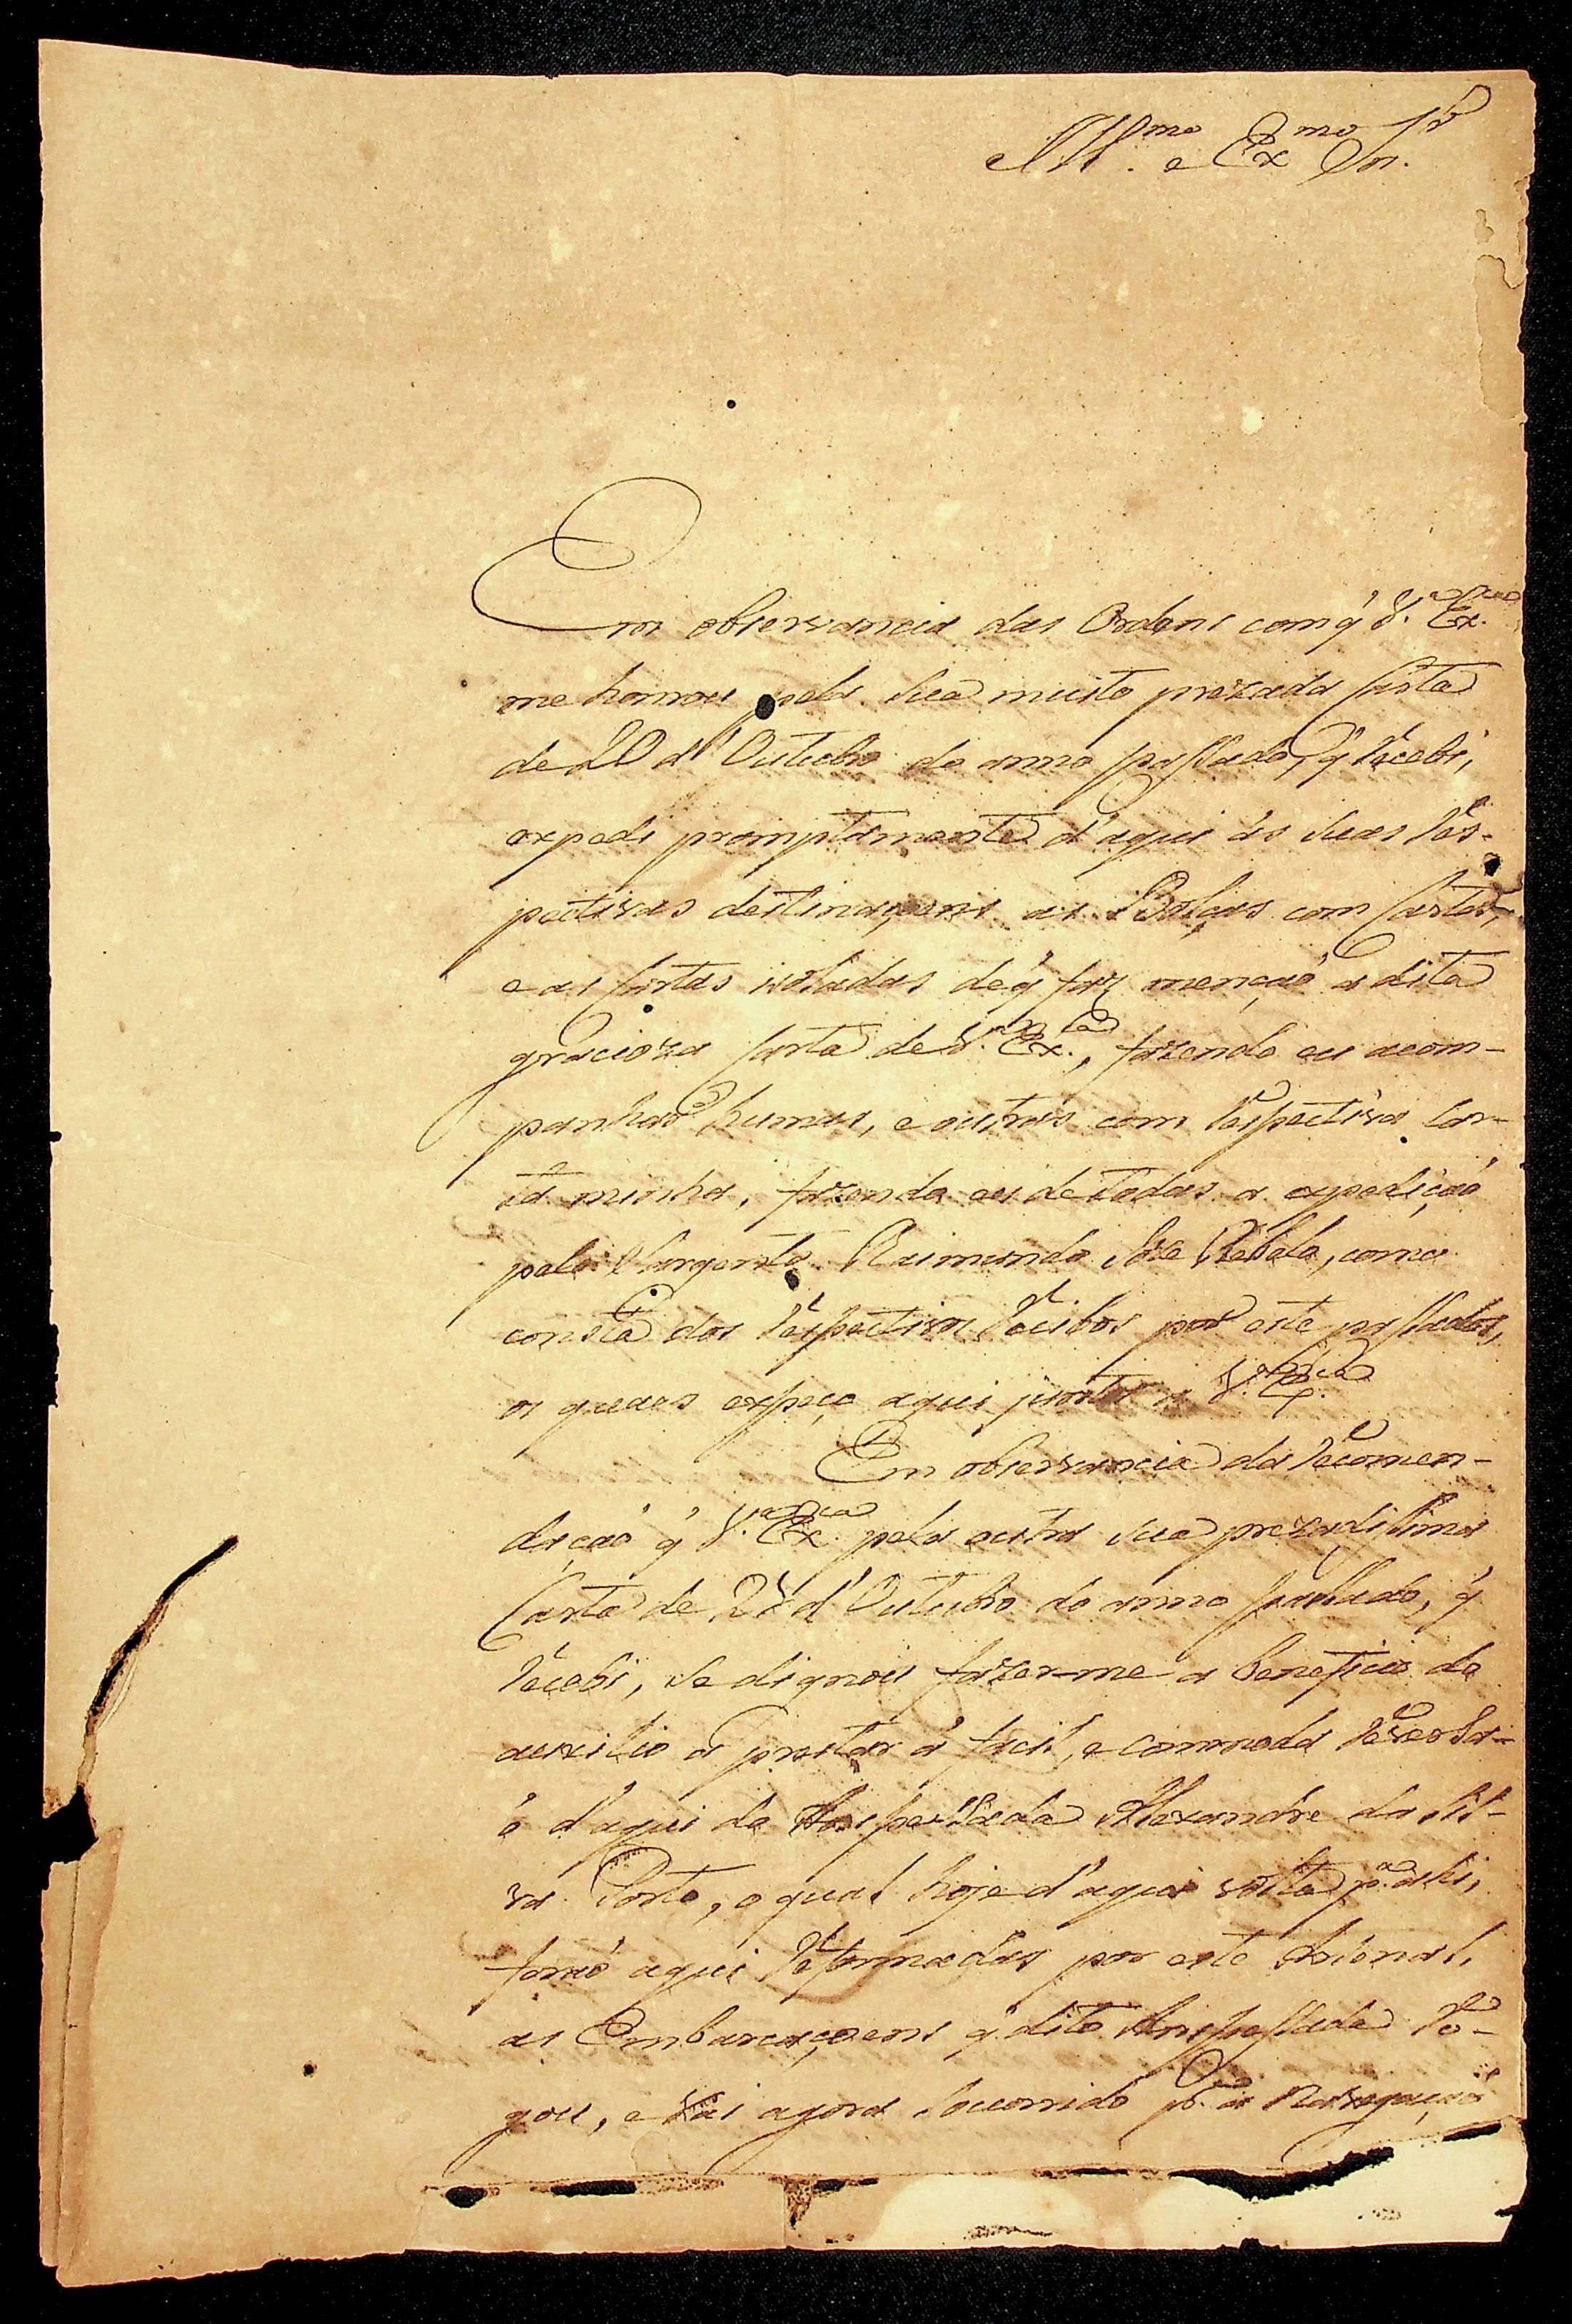 Ill.mo e Ex.mo Sn.r
Em observancia das Ordens com q' V. Ex.cia
me honrou pela Sua muito prezada Carta
de 20 d'Outubro do anno passado, q' recebi,
expedi promptamente d'aqui ás suas Res-
pectivas destinaçoens as Bolças com Cartas,
e as Cartas isoladas de q' faz menção a dita
gracioza Carta de V. Ex.cia, fazendo eu acom-
panhar humas, e outras com Respectiva Car-
ta minha, fazendo eu de todas a expedição
pelo Sargento Raimundo Joze Rebelo, como
consta dos Respectivos Recibos por este passados,
os quaes expeço aqui juntos a V. Ex.cia
Em observancia da Recomen-
dação q' V. Ex.cia pela outra Sua prezadissima
Carta de 27 d'Outubro do anno passado, q'
Recebi, Se dignou fazer-me a beneficio do
auxilio a prestar á facil, e commoda
d'aqui do Anspessada Alexandre da Sil-
va Porto, o qual hoje d'aqui volta p.a ahi,
forão aqui Reformadas por este Arsenal,
as Embarcaçoens q' dito Anspessada Ro-
gou, e vai agora Socorrido p.a a Navegação